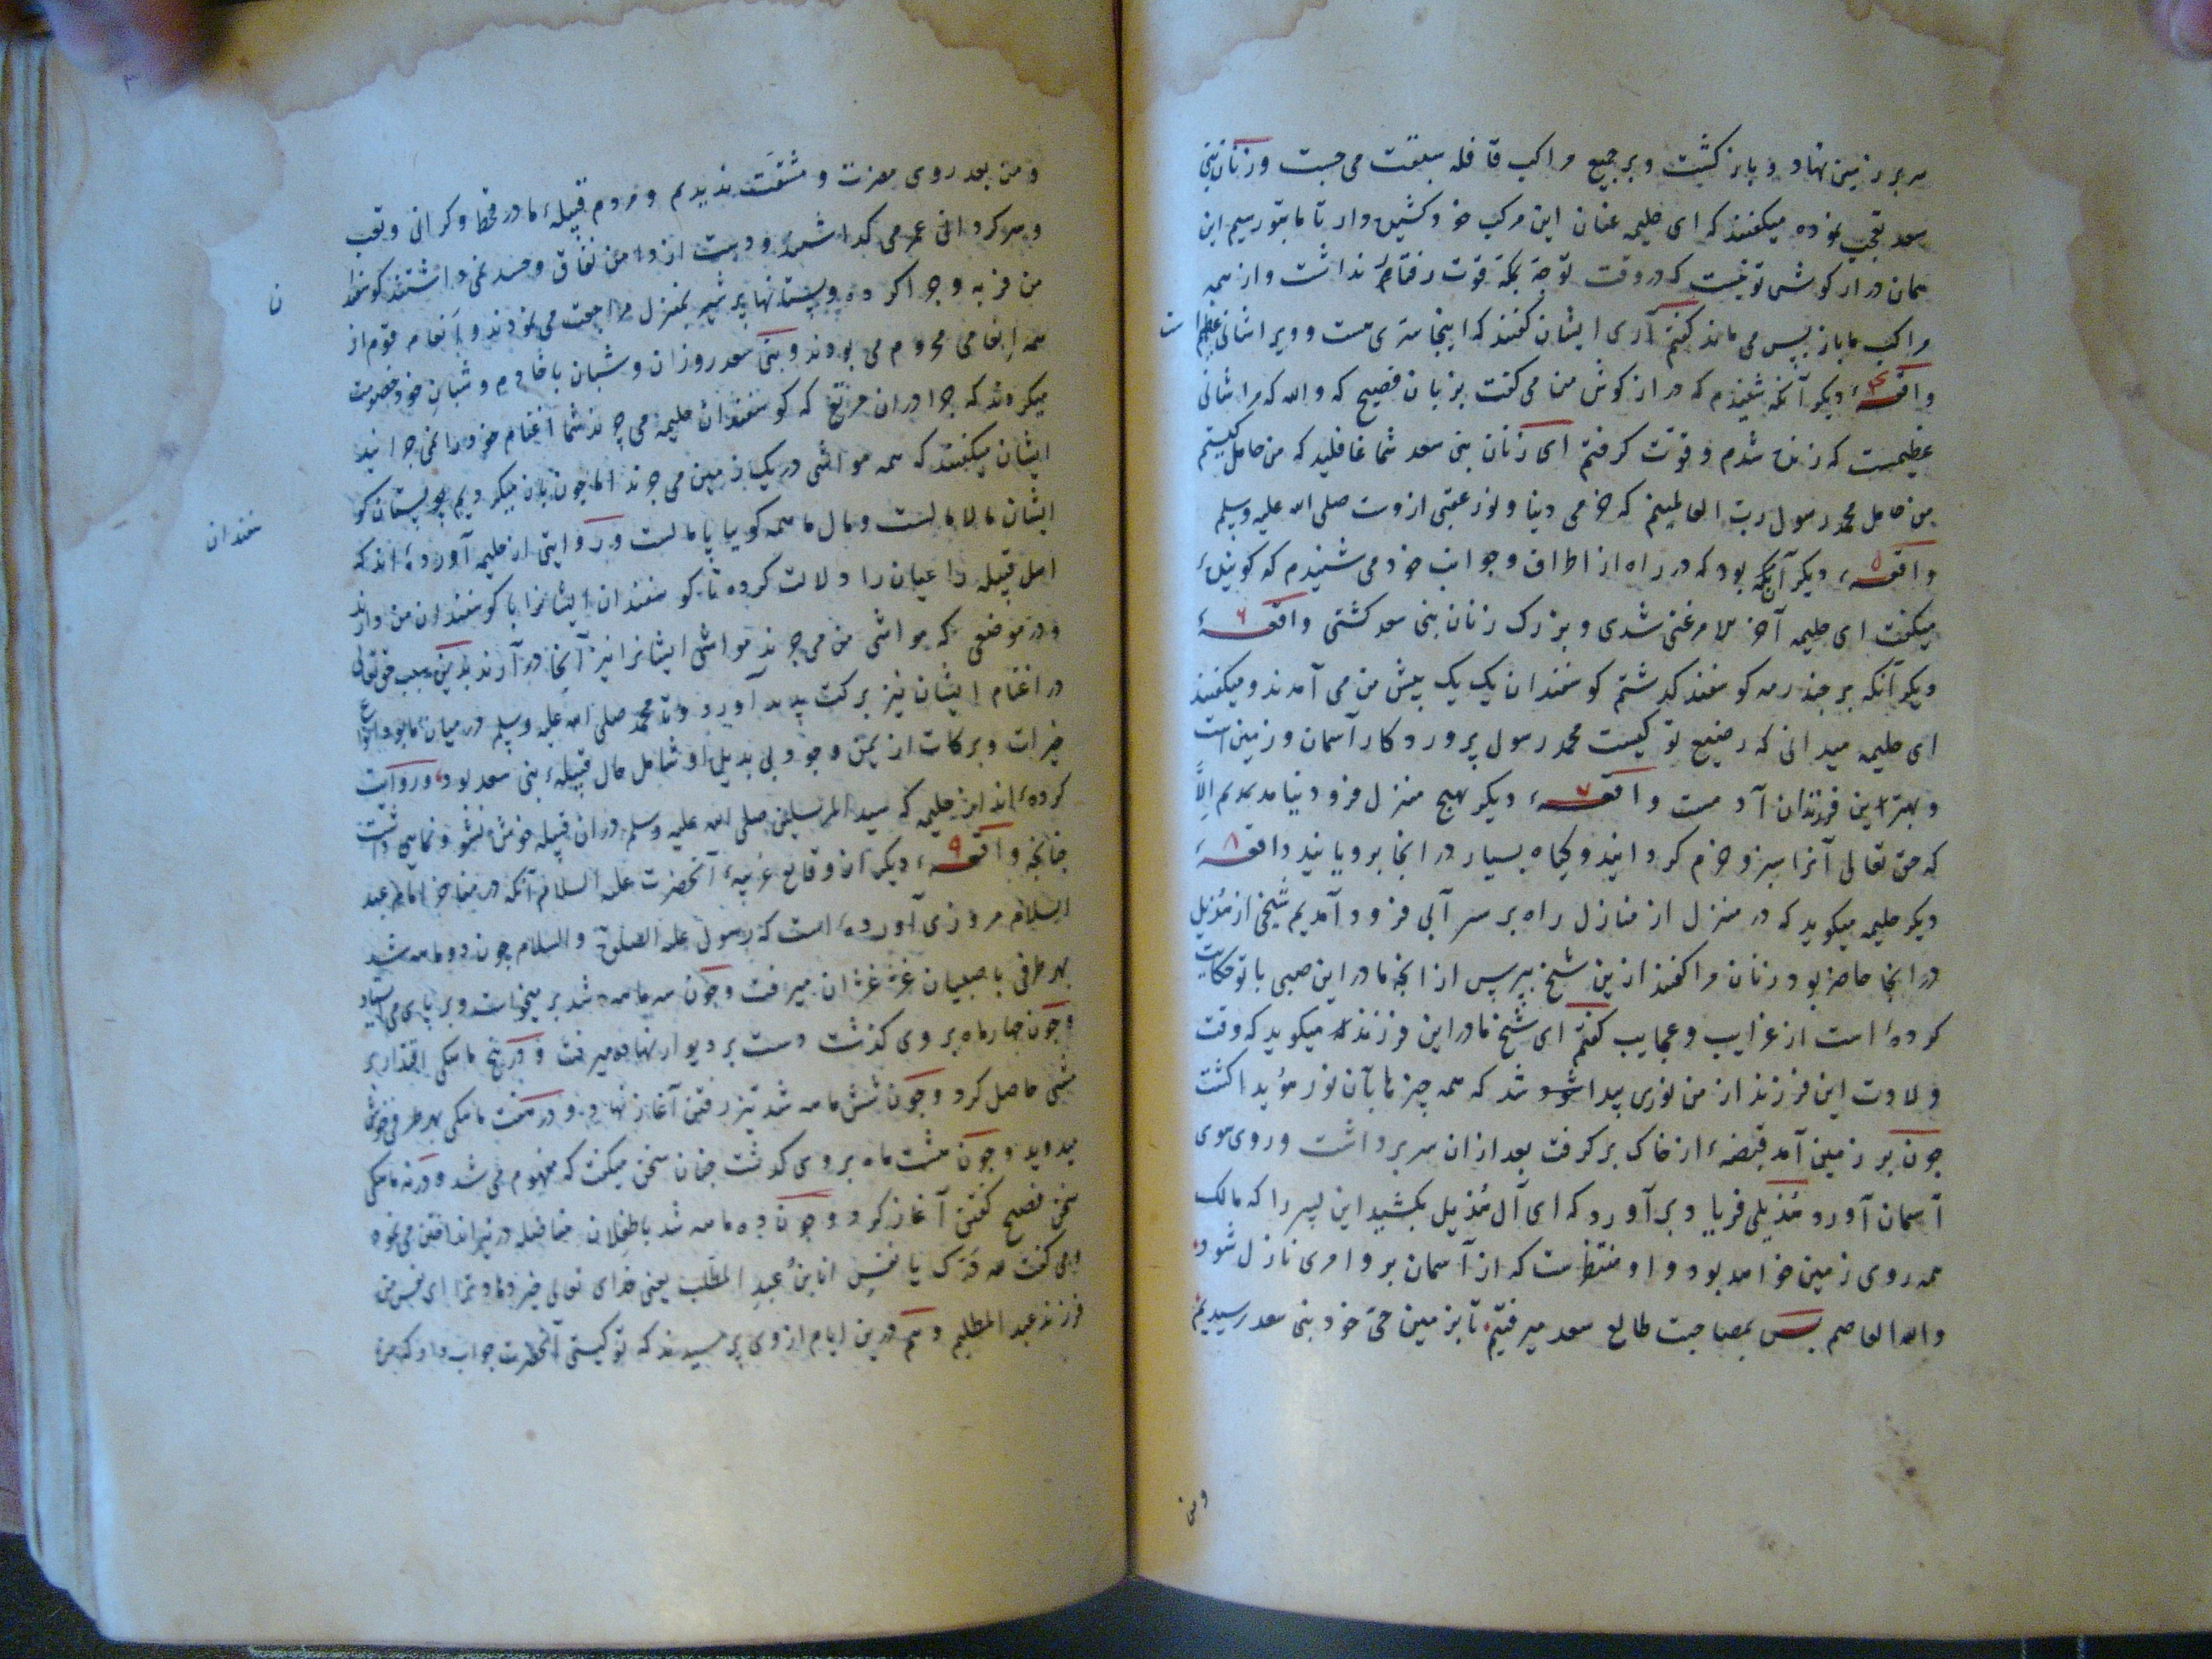 سر بر زمین نهاد و باز کشت و بر جمیع مراکب قافله سبقت می جست و زنان بنی
سعد تعجب نموده میکفتند که ای حلیمه عنان این مرکب خود کشیده دار تا ما بتو رسیم این
همان دراز کوش تو نیست که در وقت توجه بمکه قوت رفتار نداشت و از همه
مراکب ما باز پس می ماند کفتم آری ایشان کفتند که اینجا سری هست و ویرا شانی عظیم است
واقعه ٤ دیکر آنکه شنیدم که دراز کوش من می کفت بزبان فصیح که والله که مرا شانی
عظیمست که زنده شدم و قوت کرفتم ای زنان بنی سعد شما غافلید که من حامل کیستم
من حامل محمد رسول رب العالمینم که خرمی دنیا و نور عقبی ازوست صلی الله علیه وسلم
واقعه ٥ دیکر آنکه بود که در راه از اطراف و جوانب خود می شنیدم که کوینده
میکفت ای حلیمه آخر الامر غنی شدی و بزرک زنان بنی سعد کشتی واقعه ٦
دیکر آنکه بر چند رمه کوسفند کذشتم کوسفندان یک یک پیش من می آمدند و میکفتند
ای حلیمه میدانی که رضیع تو کیست محمد رسول پروردکار آسمان و زمین است
و بهترین فرزندان آدمست واقعه ٧ دیکر بهیچ منزل فرود نیامدیم الا
که حق تعالی آنرا سبز و خرم کردانید و کیاه بسیار در انجا برویانید واقعه ٨
دیکر حلیمه میکوید که در منزل از منازل راه بر سر آبی فرود آمدیم شیخی از هذیل
در انجا حاضر بود زنان مرا کفتند ازین شیخ بپرس از انچه مادر این صبی با تو حکایت
کرده است از غرایب و عجایب کفتم ای شیخ مادر این فرزند میکوید که وقت
ولادت این فرزند از من نوری پیدا شد که همه چیزها بآن نور هویدا کشت
چون بر زمین آمد قبضه از خاک بر کرفت بعد ازان سر برداشت و روی سوی
آسمان آورد هذیلی فریاد بر آورد که ای آل هذیل بکشید این پسر را که مالک
همه روی زمین خواهد بود و او منتظرست که از آسمان برو امری نازل شود
والله العاصم پس بمصاحبت طالع سعد میرفتیم تا بزمین حی خود بنی سعد رسیدیم
ومن
و من بعد روی مضرت و مشقت ندیدیم و مردم قبیله ما در قحط و کرانی و تعب
و سرکردانی عمر می کذاشتند و دست از دامن نفاق و حسد نمی داشتند کوسفندا ن
من فربه و چرا کرده و پستانها پر شیر بمنزل مراجعت می نمودند و انعام قوم از
همه انعامی محروم می بودند و بنی سعد روزان و شبان با خادم و شبان خود خصومت
میکردند که چرا دران مرتع که کوسفندان حلیمه می چرند شما اغنام خود را نمی چرانید
ایشان میکفتند که همه مواشی در یک زمین می چرند اما چون باز میکردیم پستان کو سفندان
ایشان مالامالست و مال ما همه کویا پامالست و روایتی از حلیمه آورده اند که
اهل قبیله راعیان را دلالت کرده تا کوسفندان ایشانرا با کوسفندان من دارند
و در موضعی که مواشی من می چرند مواشی ایشانرا نیز آنجا در آرند بدین سبب حق تعالی
در اغنام ایشان نیز برکت پدید آورد و تا محمد صلی الله علیه وسلم در میان ما بود انواع
خیرات و برکات از یمن وجود بی بدیل او شامل حال قبیله بنی سعد بود و روایت
کرده اند از حلیمه که سید المرسلین صلی الله علیه وسلم دران قبیله خوش نشو و نمایی داشت
چنانچه واقعه ٩ دیکر از وقایع غریبه آنحضرت علیه السلام آنکه در مفاخر امام عبد
السلام مروزی آورده است که رسول علیه الصلوة والسلام چون دو ماهه شد
بهر طرفی با صبیان غژ غژان میرفت و چون سه ماهه شد بر میخواست و بر پای می ایستاد
و چون چهار ماه بر وی کذشت دست بر دیوار نهاده میرفت و در پنج ماهکی اقتدار بر
مشی حاصل کرد و چون شش ماهه شد تیز رفتن آغاز نهاد و در هفت ماهکی بهر طرفی خوش
میدوید و چون هشت ماه بر وی کذشت چنان سخن میکفت که مفهوم می شد و در نه ماهکی
سخن فصیح کفتن آغاز کرد و چون ده ماهه شد با طفلان مناضله در تیر اندازی می نمود
و می کفت یا نفس انا ابن عبد المطلب یعنی خدای تعالی خیر دهاد ترا ای نفس من
فرزند عبد المطلبم و هم درین ایام از وی پرسیدند که تو کیستی آنحضرت جواب داد که من